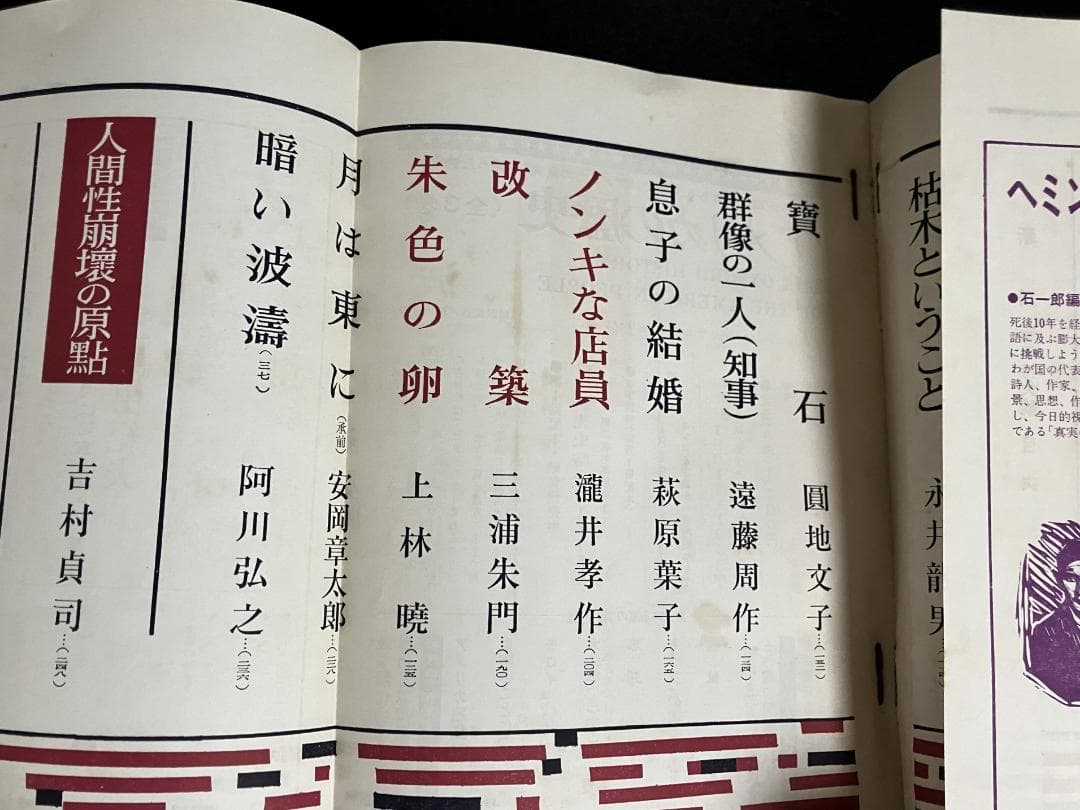 ヘミン
●石一郎編
死後10年を経
語に及ぶ膨大
に挑戦しよう
わが国の代表
詩人、作家、
景、思想、作
し、今日的視
である「真実
枯木ということ
永井龍男
寶石
圓地文子…(一五二)
群像の一人(知事)
遠藤周作…(一三四)
息子の結婚
萩原葉子…(一六五)
ノンキな店員
瀧井孝作…(二〇四)
改築
三浦朱門…(一九〇)
朱色の卵
上林曉…(一三五)
月は東に(承前)
安岡章太郎…(二二八)
暗い波濤(三七)
阿川弘之…(二三六)
人間性崩壊の原點
吉村貞司…(二四八)